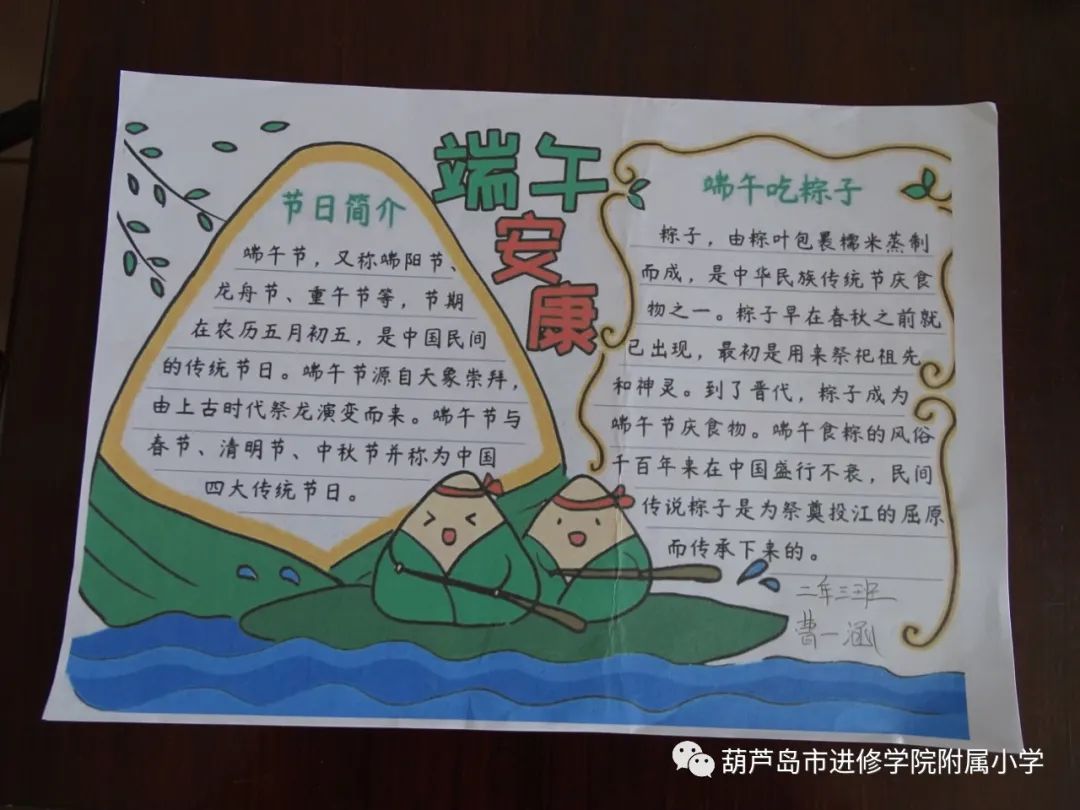 端午
安
康
节日简介
端午节，又称端阳节、
龙舟节、重午节等，节期
在农历五月初五，是中国民间
的传统节日。端午节源自天象崇拜，
由上古时代祭龙演变而来。端午节与
春节、清明节、中秋节并称为中国
四大传统节日。
端午吃粽子
粽子，由粽叶包裹糯米蒸制
而成，是中华民族传统节庆食
物之一。粽子早在春秋之前就
已出现，最初是用来祭祀祖先
和神灵。到了晋代，粽子成为
端午节庆食物。端午食粽的风俗
千百年来在中国盛行不衰，民间
传说粽子是为祭奠投江的屈原
而传承下来的。
二年三班
曹一涵
葫芦岛市进修学院附属小学